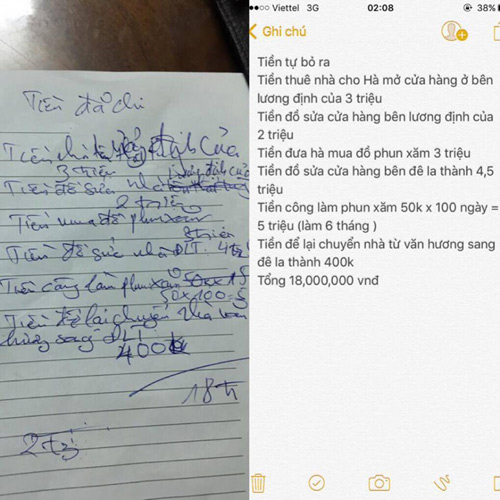 Tiền đã chi
Tiền nhà định của
3 triệu
Tiền đồ sửa nhà
2 triệu
Tiền mua đồ phun xăm
3 triệu
Tiền đồ sửa nhà ĐLT. 4tr
Tiền công làm phun xăm
50x100=5
Tiền để lại chuyển nhà văn
hương sang ĐLT
400k
18tr
Viettel 3G 02:08 38%
Ghi chú
Tiền tự bỏ ra
Tiền thuê nhà cho Hà mở cửa hàng ở bên
lương định của 3 triệu
Tiền đồ sửa cửa hàng bên lương định của
2 triệu
Tiền đưa hà mua đồ phun xăm 3 triệu
Tiền đồ sửa cửa hàng bên đê la thành 4,5
triệu
Tiền công làm phun xăm 50k x 100 ngày =
5 triệu (làm 6 tháng )
Tiền để lại chuyển nhà từ văn hương sang
đê la thành 400k
Tổng 18,000,000 vnđ